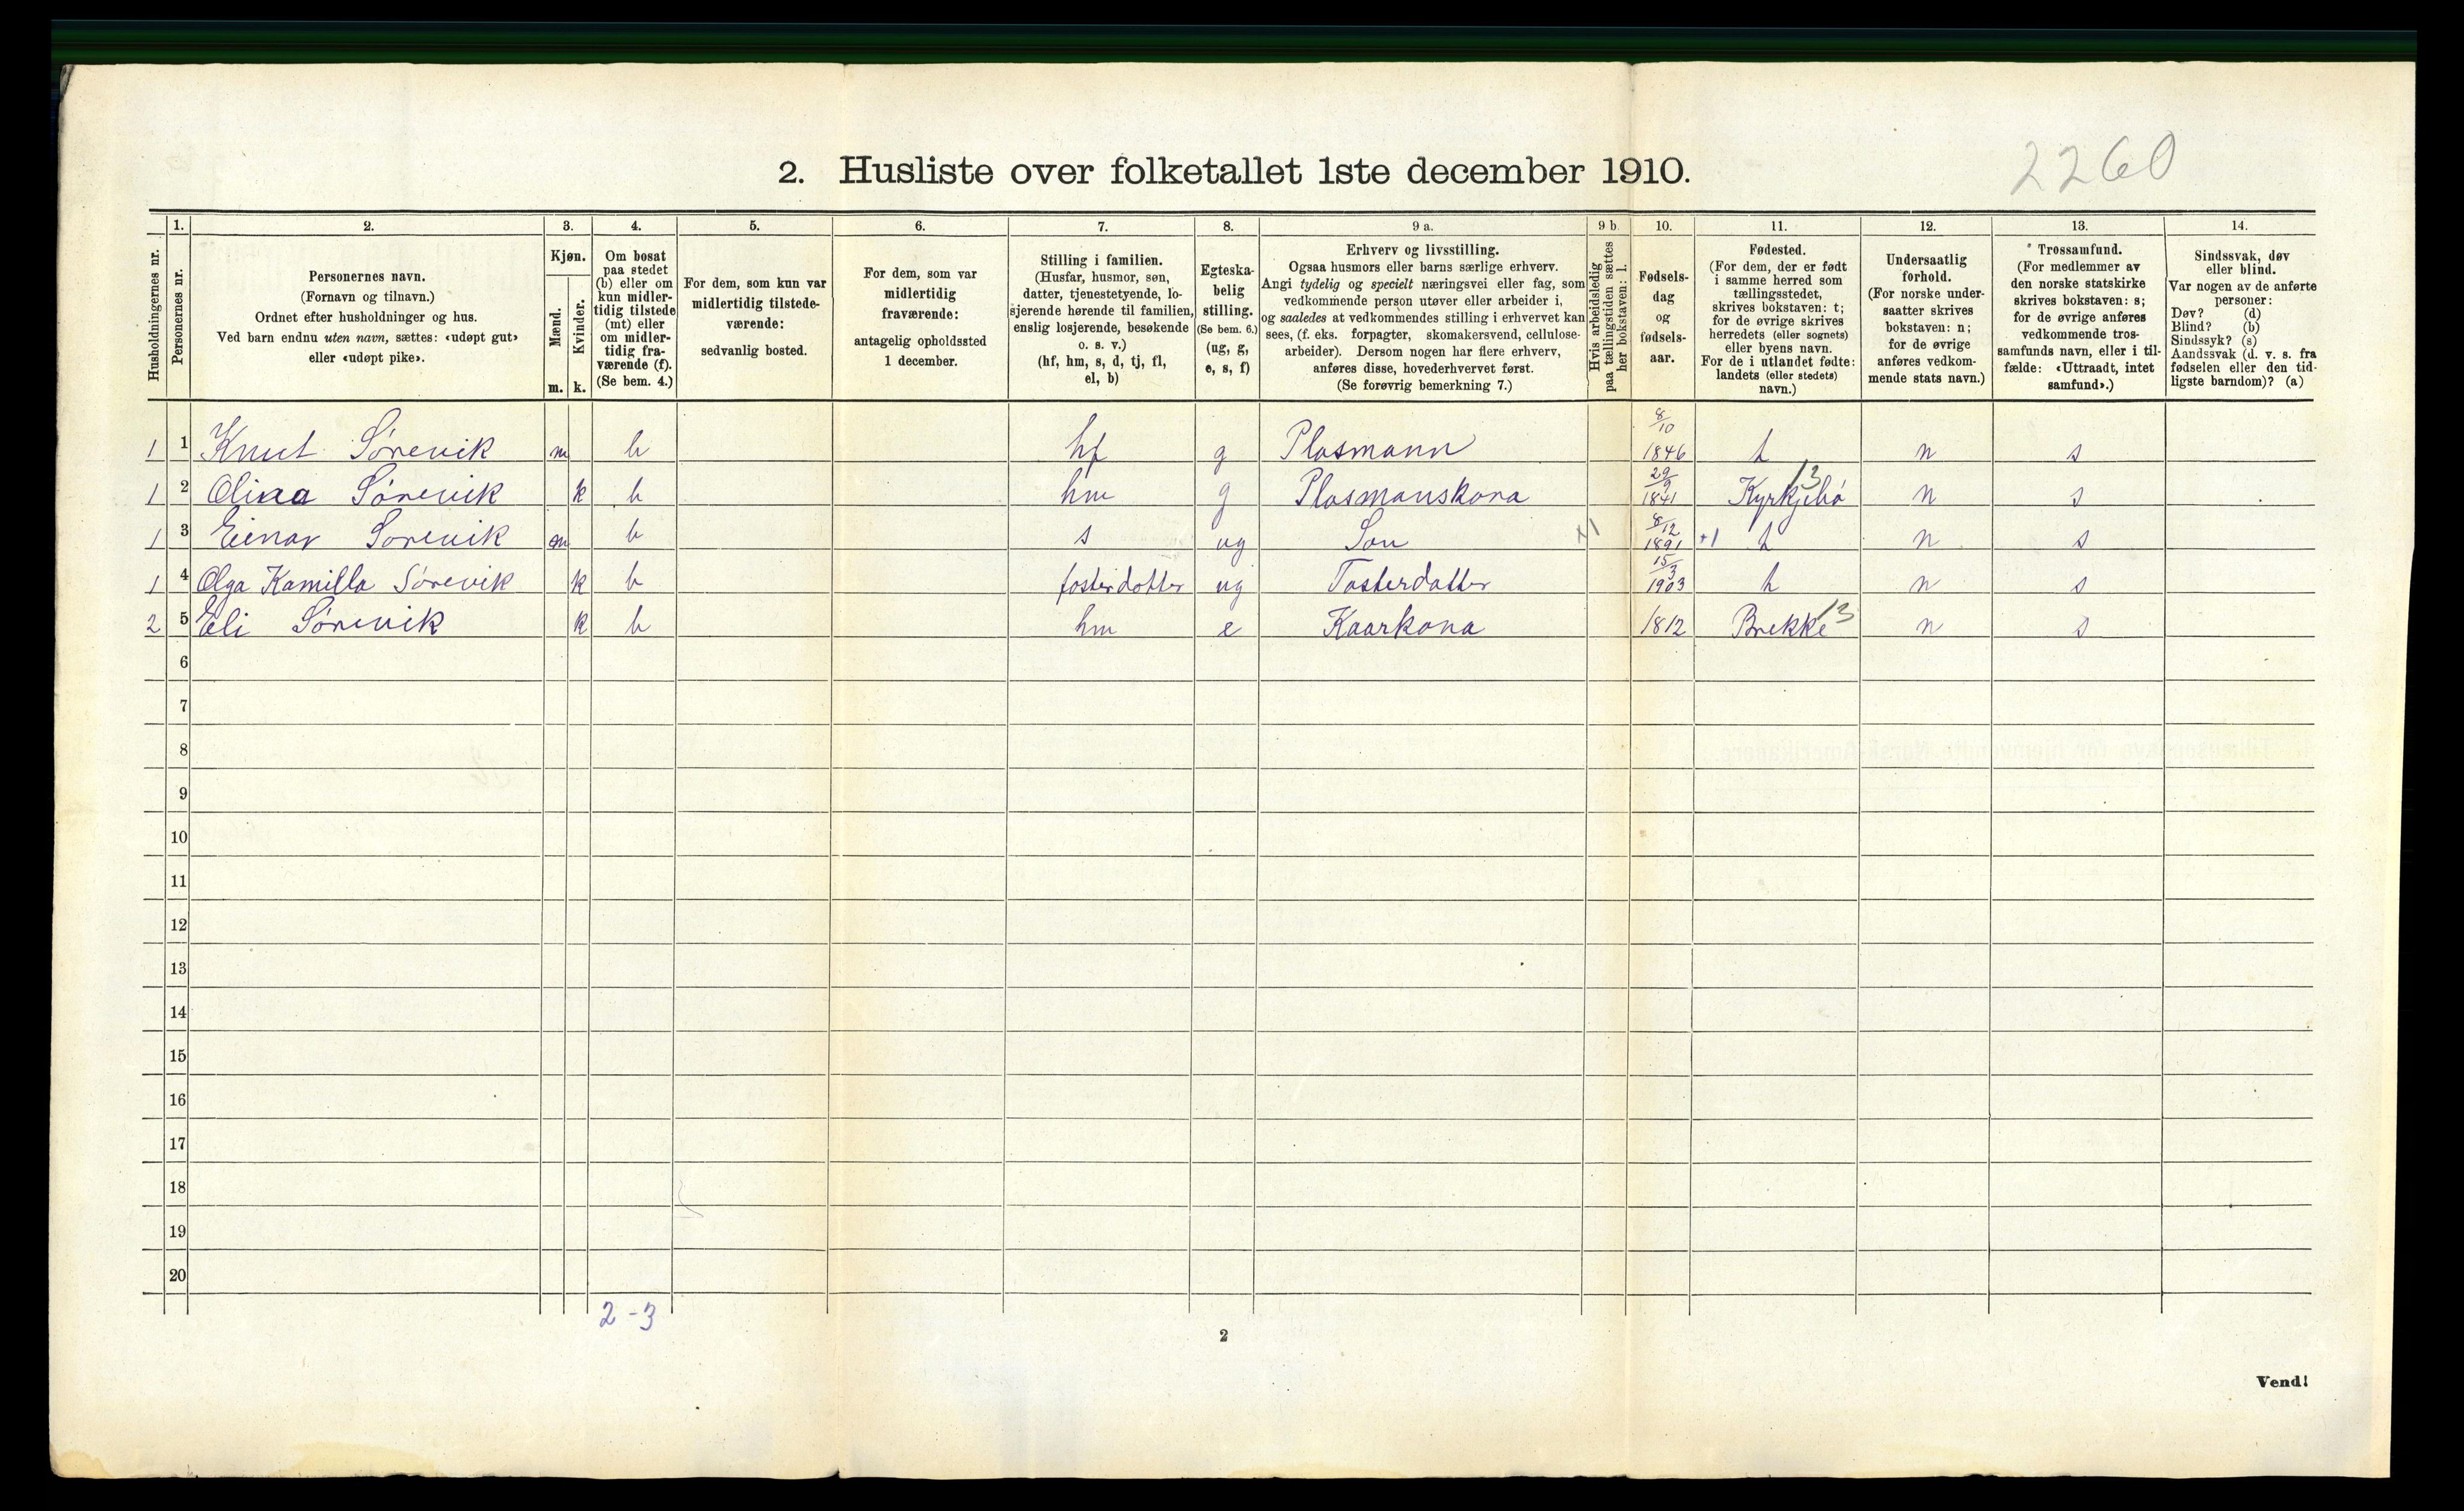 2260
2. Husliste over folketallet 1ste december 1910.
Husholdningernes nr.
1.
Personernes nr.
2.
Personernes navn.
(Fornavn og tilnavn.)
Ordnet efter husholdninger og hus.
Ved barn endnu uten navn, sættes: «udøpt gut»
eller «udøpt pike».
3.
Kjøn.
Mænd.
m.
Kvinder.
k.
4.
Om bosat
paa stedet
(b) eller om
kun midler-
tidig tilstede
(mt) eller
om midler-
tidig fra-
værende (f).
(Se bem. 4.)
5.
For dem, som kun var
midlertidig tilstede-
værende:
sedvanlig bosted.
6.
For dem, som var
midlertidig
fraværende:
antagelig opholdssted
1 december.
7.
Stilling i familien.
(Husfar, husmor, søn,
datter, tjenestetyende, lo-
sjerende hørende til familien,
enslig losjerende, besøkende
o. s. v.)
(hf, hm, s, d, tj, fl,
el, b)
8.
Egteska-
belig
stilling.
(Se bem. 6.)
(ug, g,
e, s, f)
9 a.
Erhverv og livsstilling.
Ogsaa husmors eller barns særlige erhverv.
Angi tydelig og specielt næringsvei eller fag, som
vedkommende person utøver eller arbeider i,
og saaledes at vedkommendes stilling i erhvervet kan
sees, (f. eks. forpagter, skomakersvend, cellulose-
arbeider). Dersom nogen har flere erhverv,
anføres disse, hovederhvervet først.
(Se forøvrig bemerkning 7.)
9 b.
Hvis arbeidsledig
paa tællingstiden sættes
her bokstaven: l.
10.
Fødsels-
dag
og
fødsels-
aar.
11.
Fødested.
(For dem, der er født
i samme herred som
tællingsstedet,
skrives bokstaven: t;
for de øvrige skrives
herredets (eller sognets)
eller byens navn.
For de i utlandet fødte:
landets (eller stedets)
navn.)
12.
Undersaatlig
forhold.
(For norske under-
saatter skrives
bokstaven: n;
for de øvrige
anføres vedkom-
mende stats navn.)
13.
Trossamfund.
(For medlemmer av
den norske statskirke
skrives bokstaven: s;
for de øvrige anføres
vedkommende tros-
samfunds navn, eller i til-
fælde: «Uttraadt, intet
samfund».)
14.
Sindssvak, døv
eller blind.
Var nogen av de anførte
personer:
Døv? (d)
Blind? (b)
Sindssyk? (s)
Aandssvak (d. v. s. fra
fødselen eller den tid-
ligste barndom)? (a)
1 1 Knut Sørevik m b hf g Plasmann 8/10 1846 t n s
1 2 Olina Sørevik k b hm g Plasmanskona 29/9 1841 Kyrkjebø 13 n s
1 3 Einar Sørevik m b s ug Son +1 8/12 1891 +1 t n s
1 4 Olga Kamilla Sørevik k b fosterdotter ug Fosterdatter 15/3 1903 t n s
2 5 Eli Sørevik k b hm e Kaarkona 1812 Brekke 13 n s
6
7
8
9
10
11
12
13
14
15
16
17
18
19
20
2-3
2
Vend!